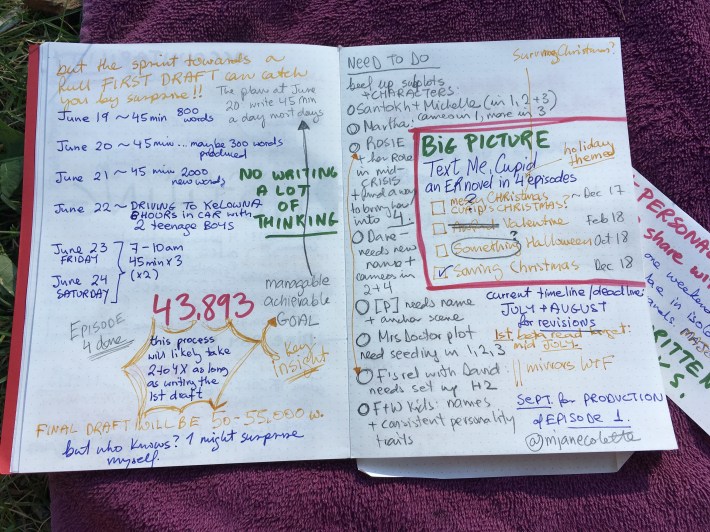 but the sprint towards a
full FIRST DRAFT can catch
you by surprise!!
The plan as of June
20 write 45 min
a day most days
June 19 ~ 45 min 800
words
June 20 ~ 45 min... maybe 300 words
produced
June 21 ~ 45 min 2000
new words
June 22 ~ DRIVING TO KELOWNA
8 HOURS IN CAR WITH
2 teenage BOYS
NO WRITING
A LOT
OF
THINKING
June 23
FRIDAY
June 24
SATURDAY
7-10am
45 min x 3
(x2)
43,893
managable
achievable
GOAL
EPISODE
4 done
this process
will likely take
2 to 4X as long
as writing the
1st draft
Key
insight
FINAL DRAFT WILL BE 50-55,000 w.
but who knows? I might surprise
myself.
NEED TO DO
beef up subplots
+ CHARACTERS:
Santokh + Michelle (in 1, 2 + 3)
Martha: cameo in 1, more in 3
ROSIE
+ her Role
in mid-
CRISIS
+ find a way
to bring her
into 4.
Dave-
needs new
name +
cameos in
2+4
[P] needs name
+ anchor scene
Mrs Doctor plot
need seeding in 1, 2, 3
F's rel with David:
needs set up H2
F+W Kids: names
+ consistent personality
traits
Surviving Christmas?
BIG PICTURE
holiday
themed
Text Me, Cupid
an ER novel in 4 episodes
Christmas
CUPID'S CHRISTMAS? ~ Dec 17
Valentine Feb 18
Something? Halloween Oct 18
Saving Christmas Dec 18
current timeline/deadline:
JULY + AUGUST
for revisions
1st beta read target:
mid JULY
mirrors WTF
SEPT. for PRODUCTION
of EPISODE 1.
@mjanecolette
PERSONAL
share with
one weekend